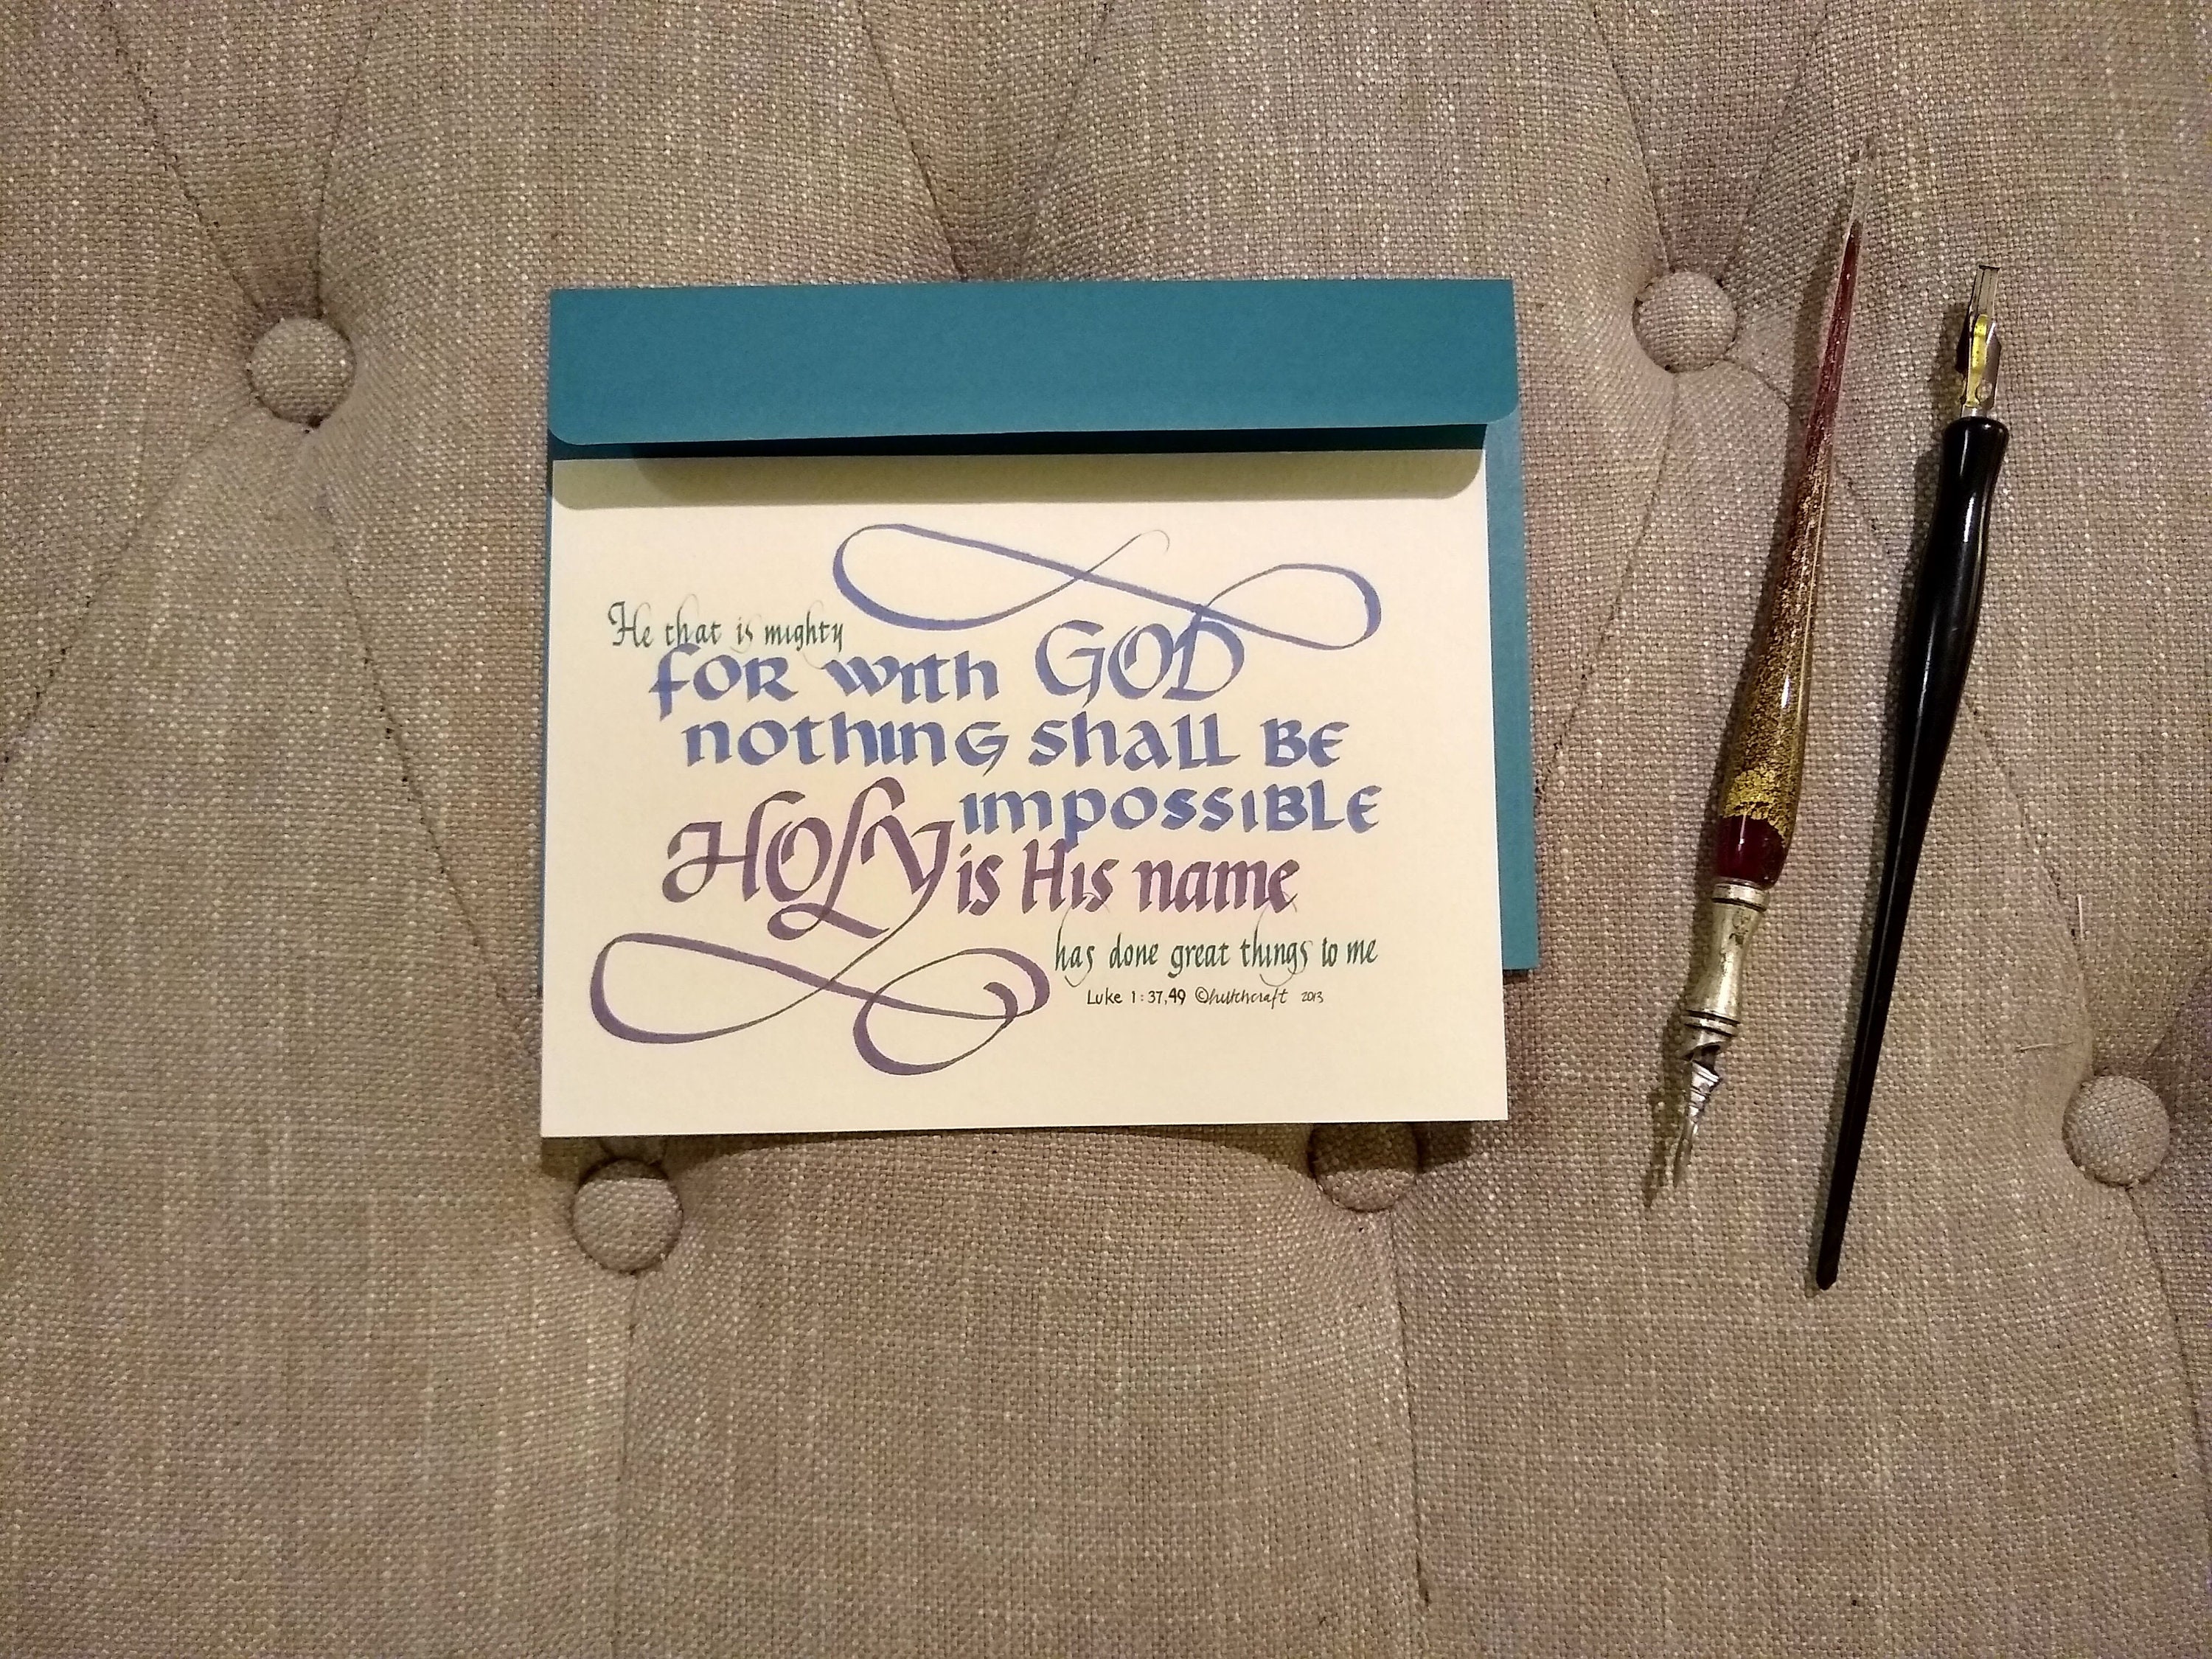 He that is mighty
for with GOD
nothing shall BE
impossIBLE
HOLY is His name
has done great things to me
Luke 1:37,49 ©hutchcraft 2013